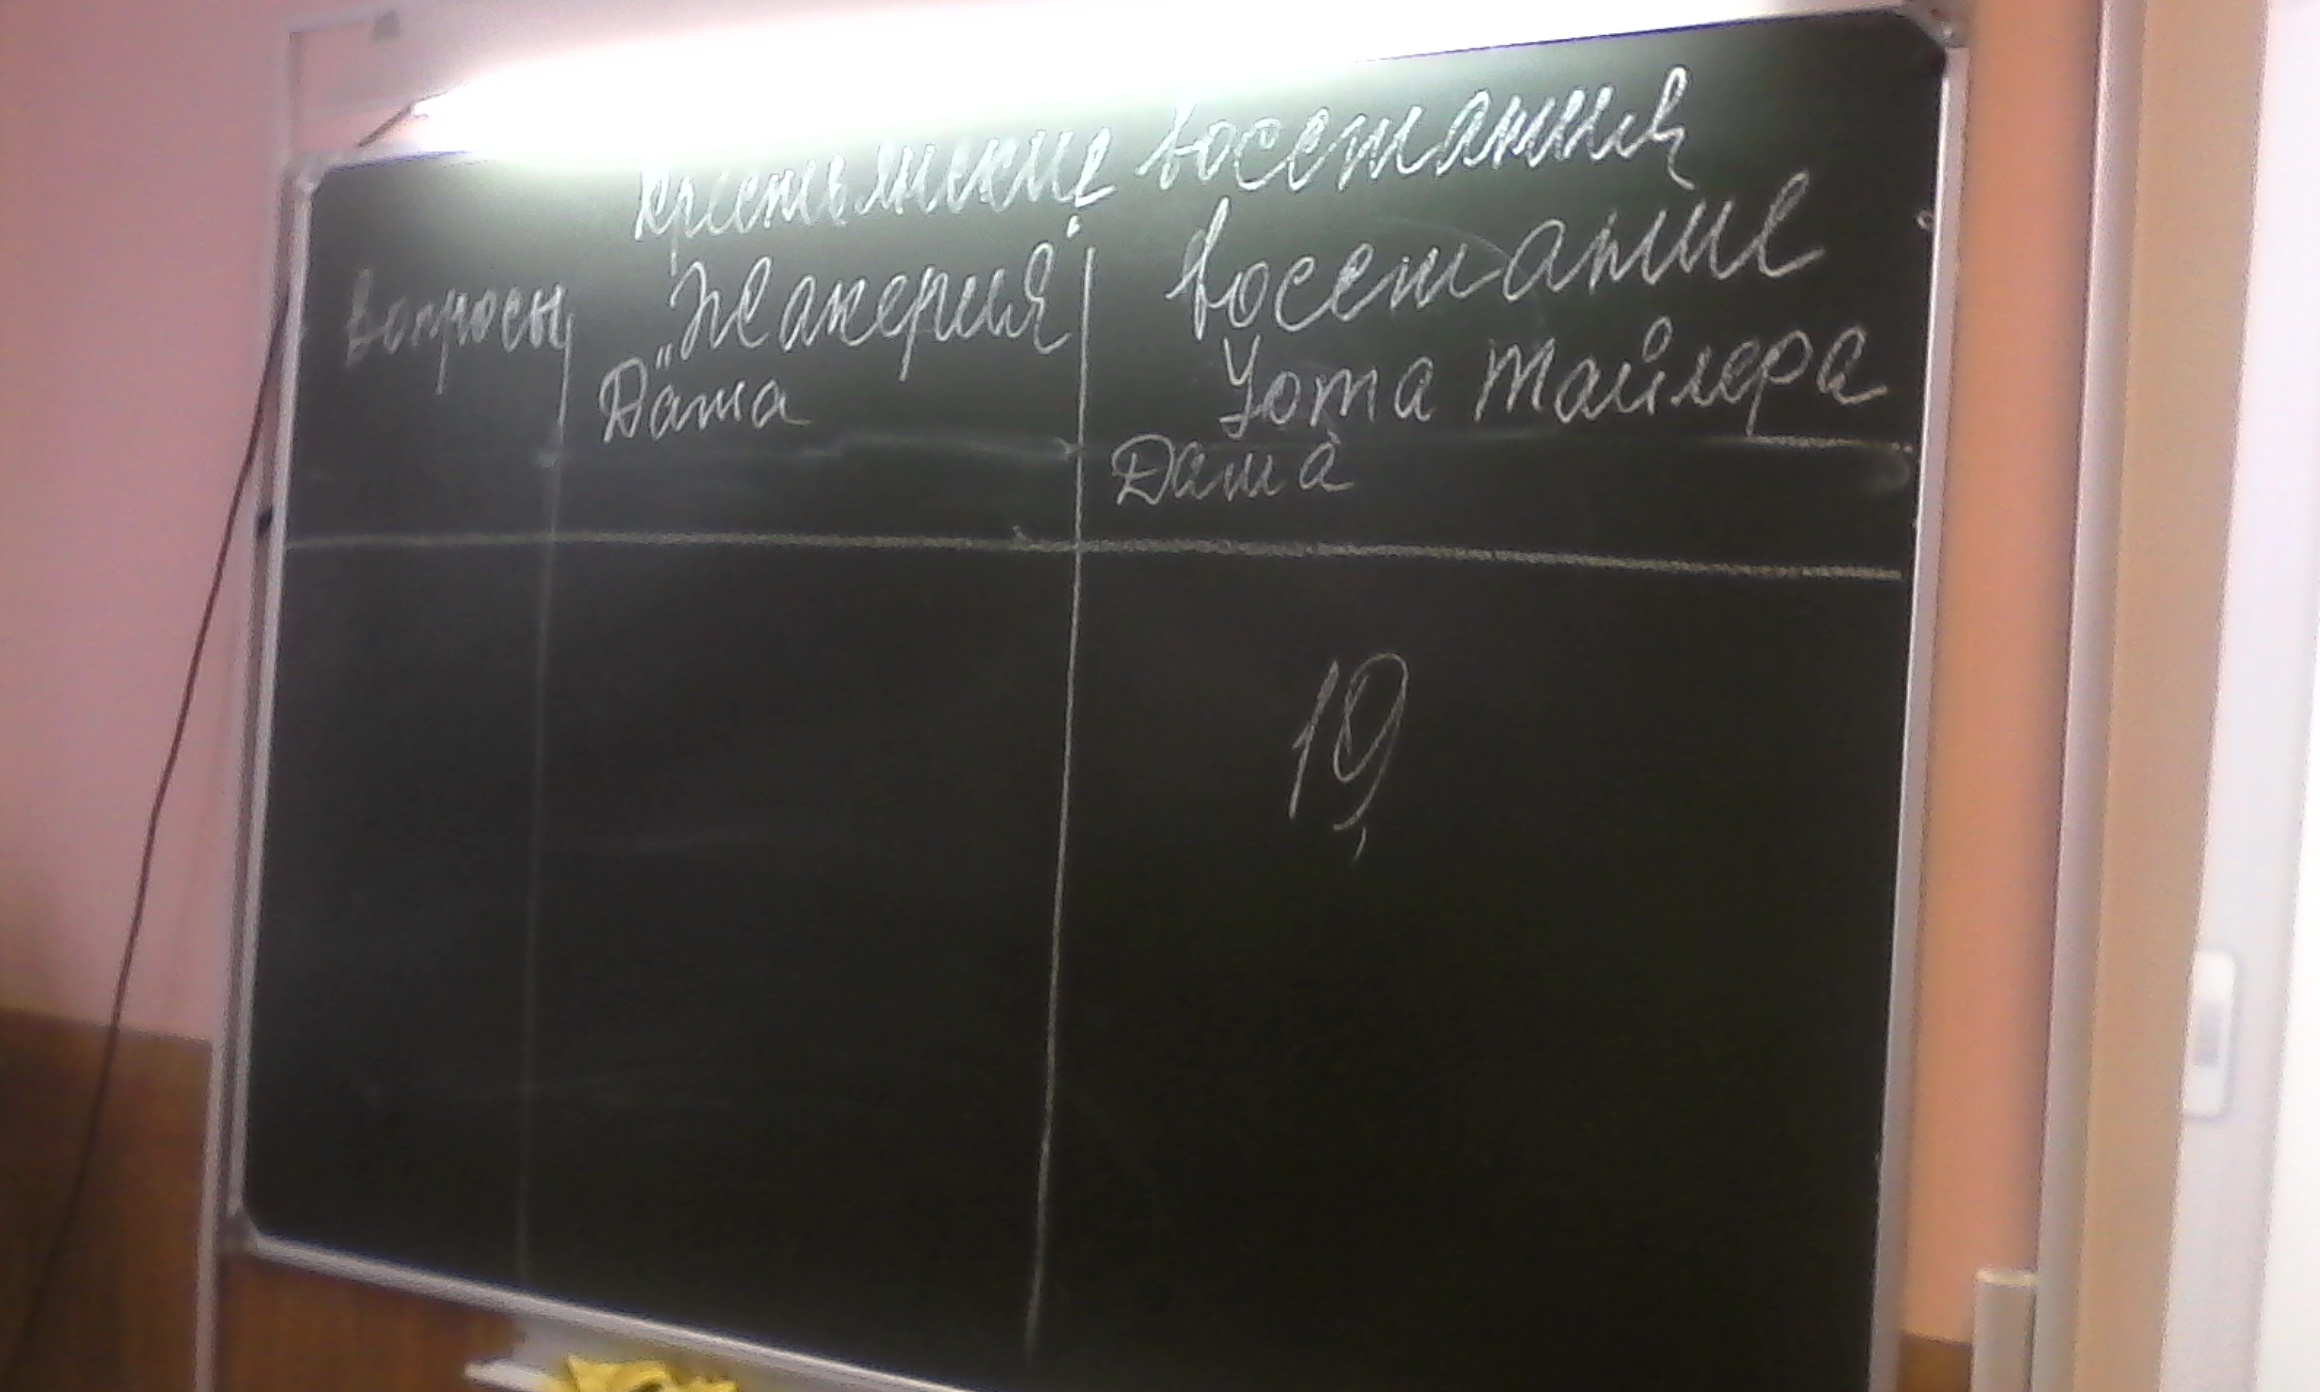 Крестьянские восстания
вопросы
„Жакерия
Дата
восстание
Уота Тайлера
Дата
19,